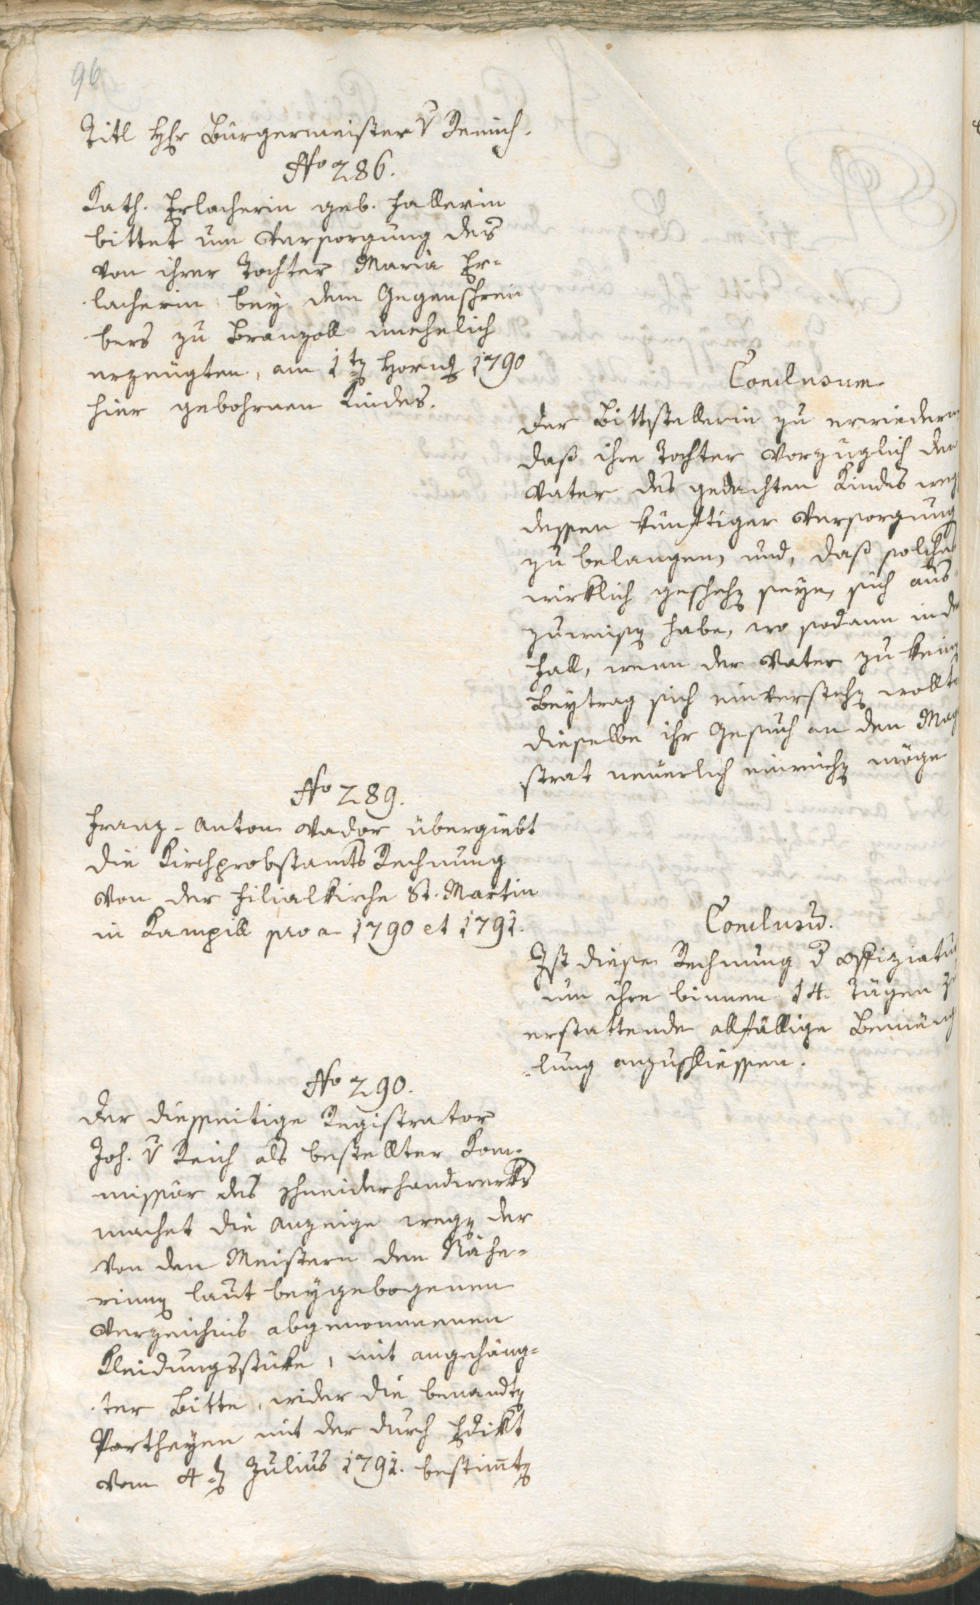 96
Titl Hhr Bürgermeister v Remich.
No 286.
Kath. Erlacherin geb. Hallerin
bittet um Versorgung des
von ihrer Tochter Maria Er-
lacherin bey dem Gegenschrei
bers zu Branzoll unehelich
erzeugten, am 1ten Hornung 1790
hier gebohrnen Kindes.
Conclusum.
Der Bittstellerin zu erwiedern
daß ihre Tochter vorzüglich den
Vater des gedachten Kindes weg
dessen künftiger Versorgung
zu belangen, und, daß solches
wirklich geschehen seye, sich aus-
zuweisen habe, wo sodann in dem
Fall, wenn der Vater zu keinem
Beytrag sich einverstehen wollte
dieselbe ihr Gesuch an den Mag
strat neuerlich einreichen möge
No 289.
Franz-Anton Vador übergiebt
die Kirchprobstamts Rechnung
von der Filialkirche St. Martin
in Kampill pro a 1790 et 1791.
Conclusum.
Ist diese Rechnung d Offiziatur
um ihre binnen 14. Tägen zu
erstattende allfällige Bemäng
lung anzuschliessen.
No 290.
Der diesseitige Registrator
Joh. v Reich als bestellter Kom-
missär des Schneiderhandwerks
machet die Anzeige wegen der
von den Meistern den Nähe-
rinnen laut beygebogenen
Verzeichnis abgenommenen
Kleidungsstüke, mit angehäng-
ter Bitte, wider die benandten
Partheyen mit der durch Edikt
vom 4ten Julius 1791. bestimten